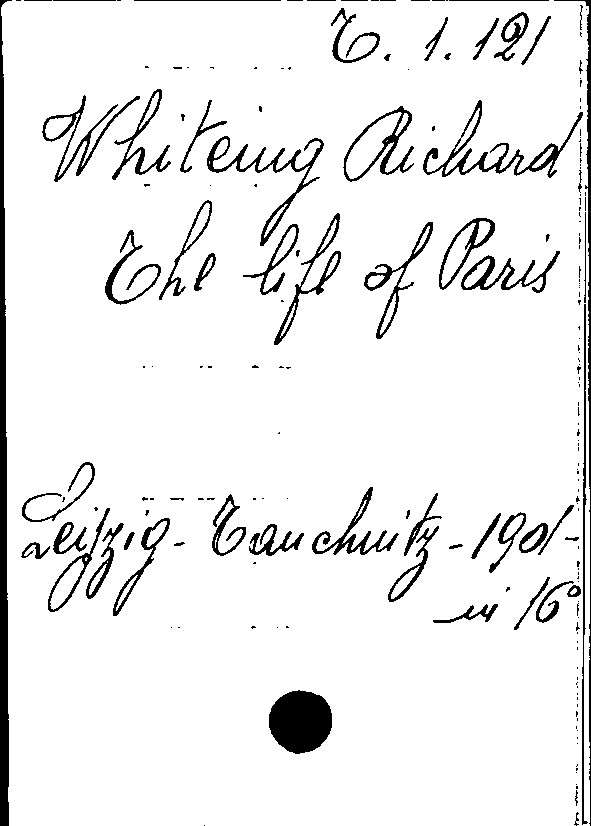 T. 1. 121
Whiteing Richard
The life of Paris
Leipzig - Tauchnitz - 1901 -
in 16°